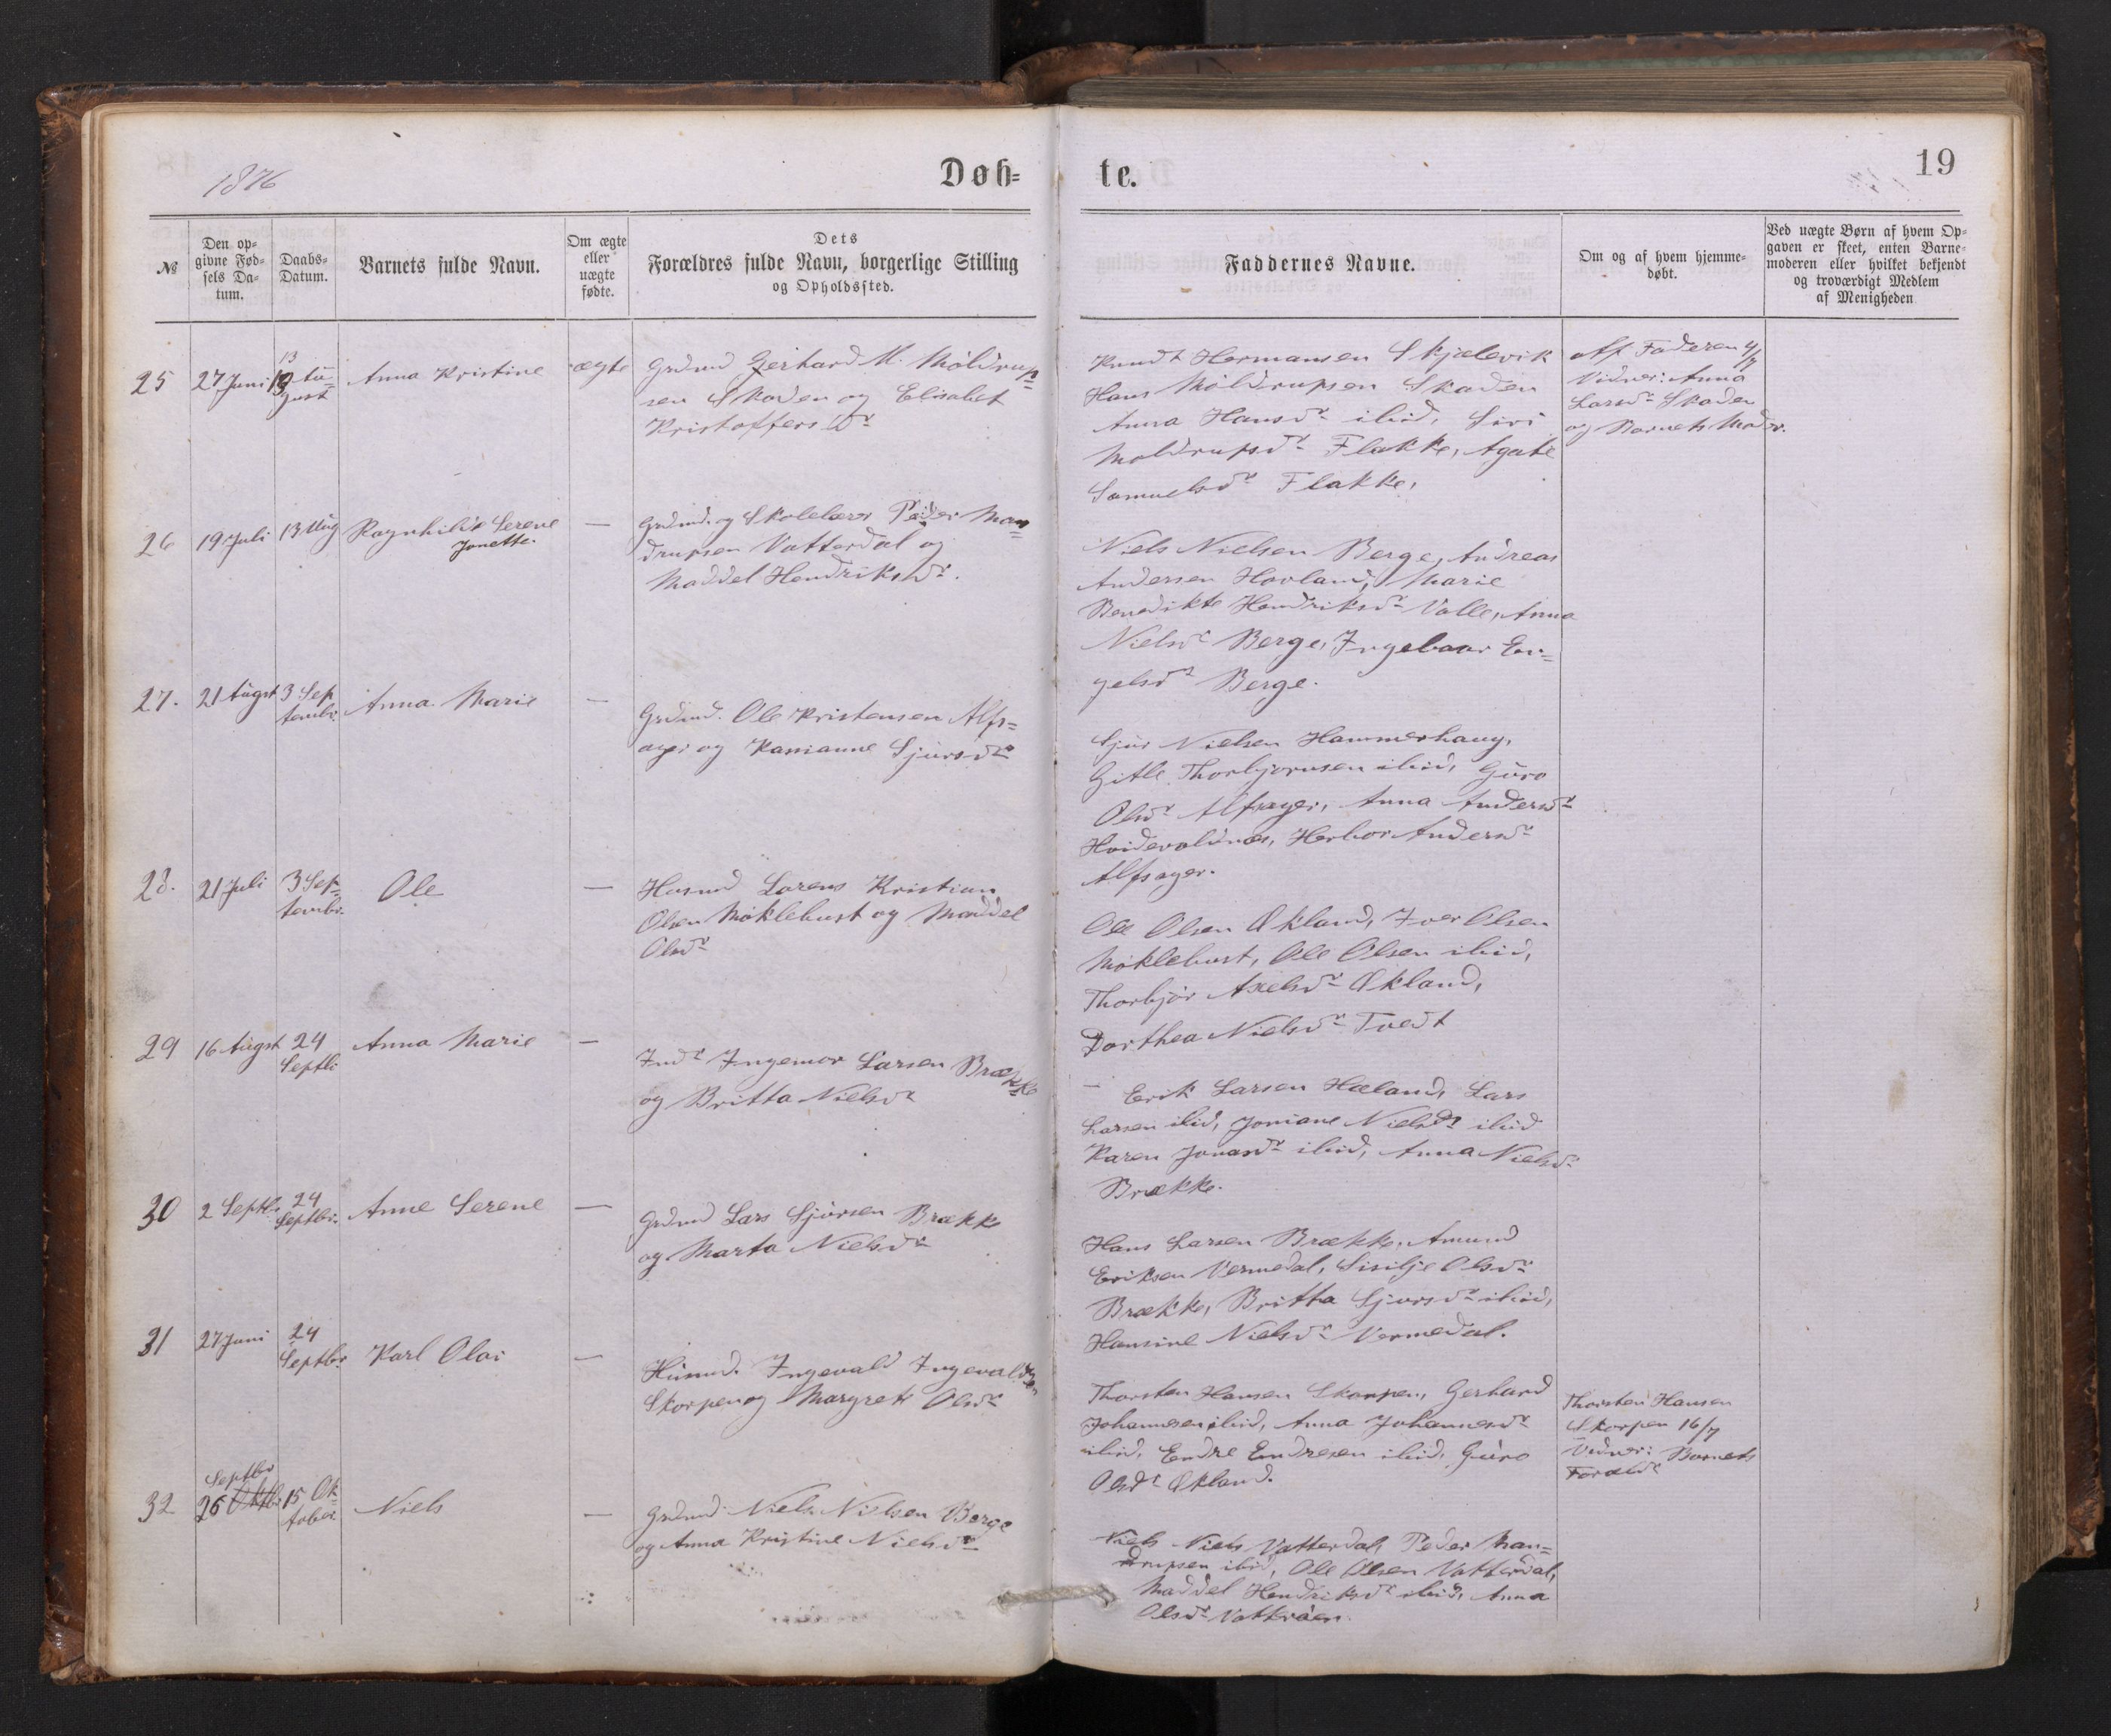 1876
Døb=
te.
19
№
Den op=
givne Fød=
sels Da=
tum.
Daabs=
Datum.
Barnets fulde Navn.
Om ægte
eller
uægte
fødte.
Dets
Forældres fulde Navn, borgerlige Stilling
og Opholdssted.
Faddernes Navne.
Om og af hvem hjemme=
døbt.
Ved uægte Børn af hvem Op=
gaven er skeet, enten Barne=
moderen eller hvilket bekjendt
og troværdigt Medlem
af Menigheden
25
27 Juni
13 Au=
gust
Anna Kristine
ægte
Grdmd Gerhard M. Møldrup=
sen Skaden og Elisabet
Kristoffers Dr
Knudt Hermansen Skjælevik
Hans Møldrupsen Skaden
Anna Hansdr ibid, Siri
Moldrupsdr Flakke, Agate
Samuelsdr Flakke,
Af Faderen 4/7
Vidner: Anna
Larsdr Skaden
og Barnets Moder.
26
19 Juli
13 Aug
Ragnhilde Serene
Jonette.
—
Grdmd. og Skolelærer Peder Man=
drupsen Vatterdal og
Maddel Hendriksdr.
Niels Nielsen Berge, Andreas
Andersen Hovland, Marie
Benedikte Hendriksdr Valle, Anna
Nielsdr Berge, Ingebaar En=
gelsdr Berge.
27.
21 Augst
3 Sep
tembr.
Anna Marie
—
Grdmd. Ole Kristensen Alfs=
ager og Karianne Sjursdr
Sjur Nielsen Hammerhaug,
Gitle Thorbjornsen ibid, Guro
Olsdr Alfsager, Anna Andersdr
Hvidevoldnæs, Herbor Andersdr
Alfsager.
28.
21 Juli
3 Sep=
tembr.
Ole
—
Husmd Lorens Kristian
Olsen Møklebust og Maddel
Olsdr
Ole Olsen Økland, Iver Olsen
Møklebust, Ole Olsen ibid,
Thorbjør Axelsdr Økland,
Dorthea Nielsdr Tvedt
29
16 Augst
24
Septb
Anna Marie
—
Indr Ingemor Larsen Brække
og Britta Nielsdr
— Erik Larsen Hæland, Lars
Larsen ibid, Joniane Nielsdr ibid
Karen Jonasdr ibid, Anna Nielsdr
Brække.
30
2 Septb.
24
Septbr.
Anne Serene
—
Grdmd Lars Sjursen Brække
og Marta Nielsdr
Hans Larsen Brække, Amund
Eriksen Vermedal, Sisilje Olsdr
Brække, Britha Sjursdr ibid,
Hansine Nielsdr Vermedal.
31
27 Juni
24
Septbr
Karl Olai
—
Husmd. Ingevald Ingevaldsen
Skorpen og Margrete Olsdr
Thorsten Hansen Skorpen, Gerhard
Johannesen ibid, Anna Johannesdr
ibid, Endre Endresen ibid, Guro
Olsdr Økland.
Thorsten Hansen
Skorpen 16/7
Vidner: Barnets
Forældr
32
Septbr
26 Oktbr
15 Ok=
tober.
Niels
—
Grdmd Niels Nielsen Berge
og Anna Kristine Nielsdr
Niels Niels Vatterdal, Peder Man=
drupsen ibid, Ole Olsen Vatterdal,
Maddel Hendriksdr ibid, Anna
Olsdr Vatteråen